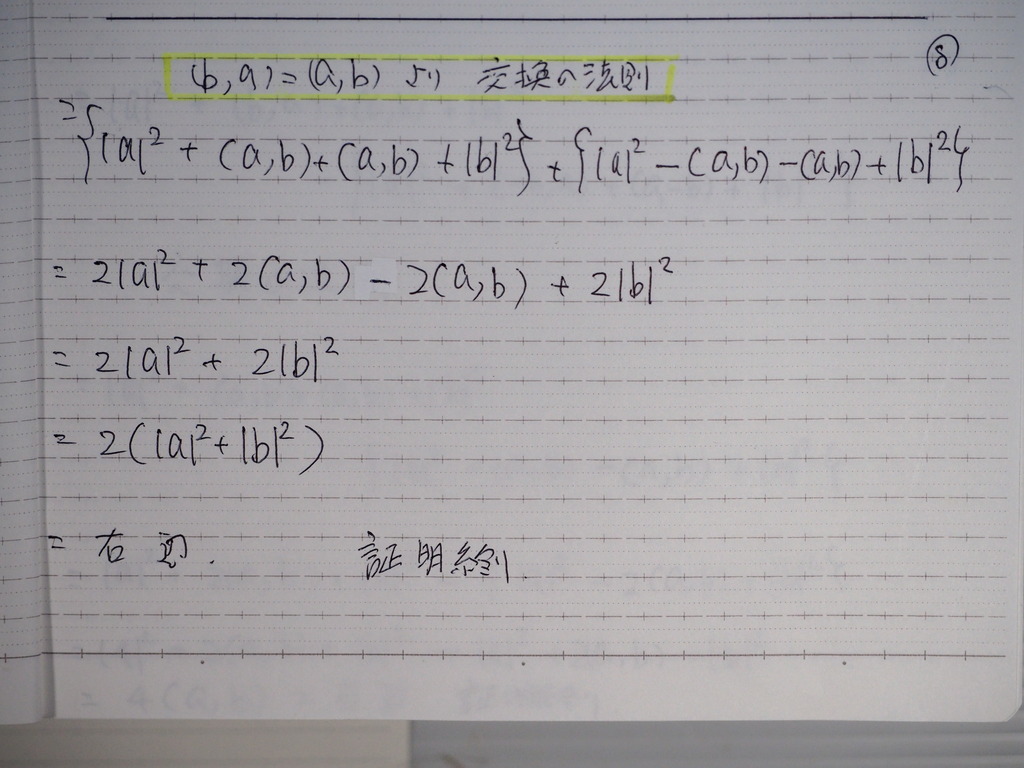 ⑧
(b,a)=(a,b) より 交換の法則
={|a|² + (a,b)+(a,b) +|b|²} + {|a|² -(a,b)-(a,b)+|b|²}
= 2|a|² + 2(a,b) - 2(a,b) + 2|b|²
= 2|a|² + 2|b|²
= 2(|a|²+|b|²)
= 右辺. 証明終り.